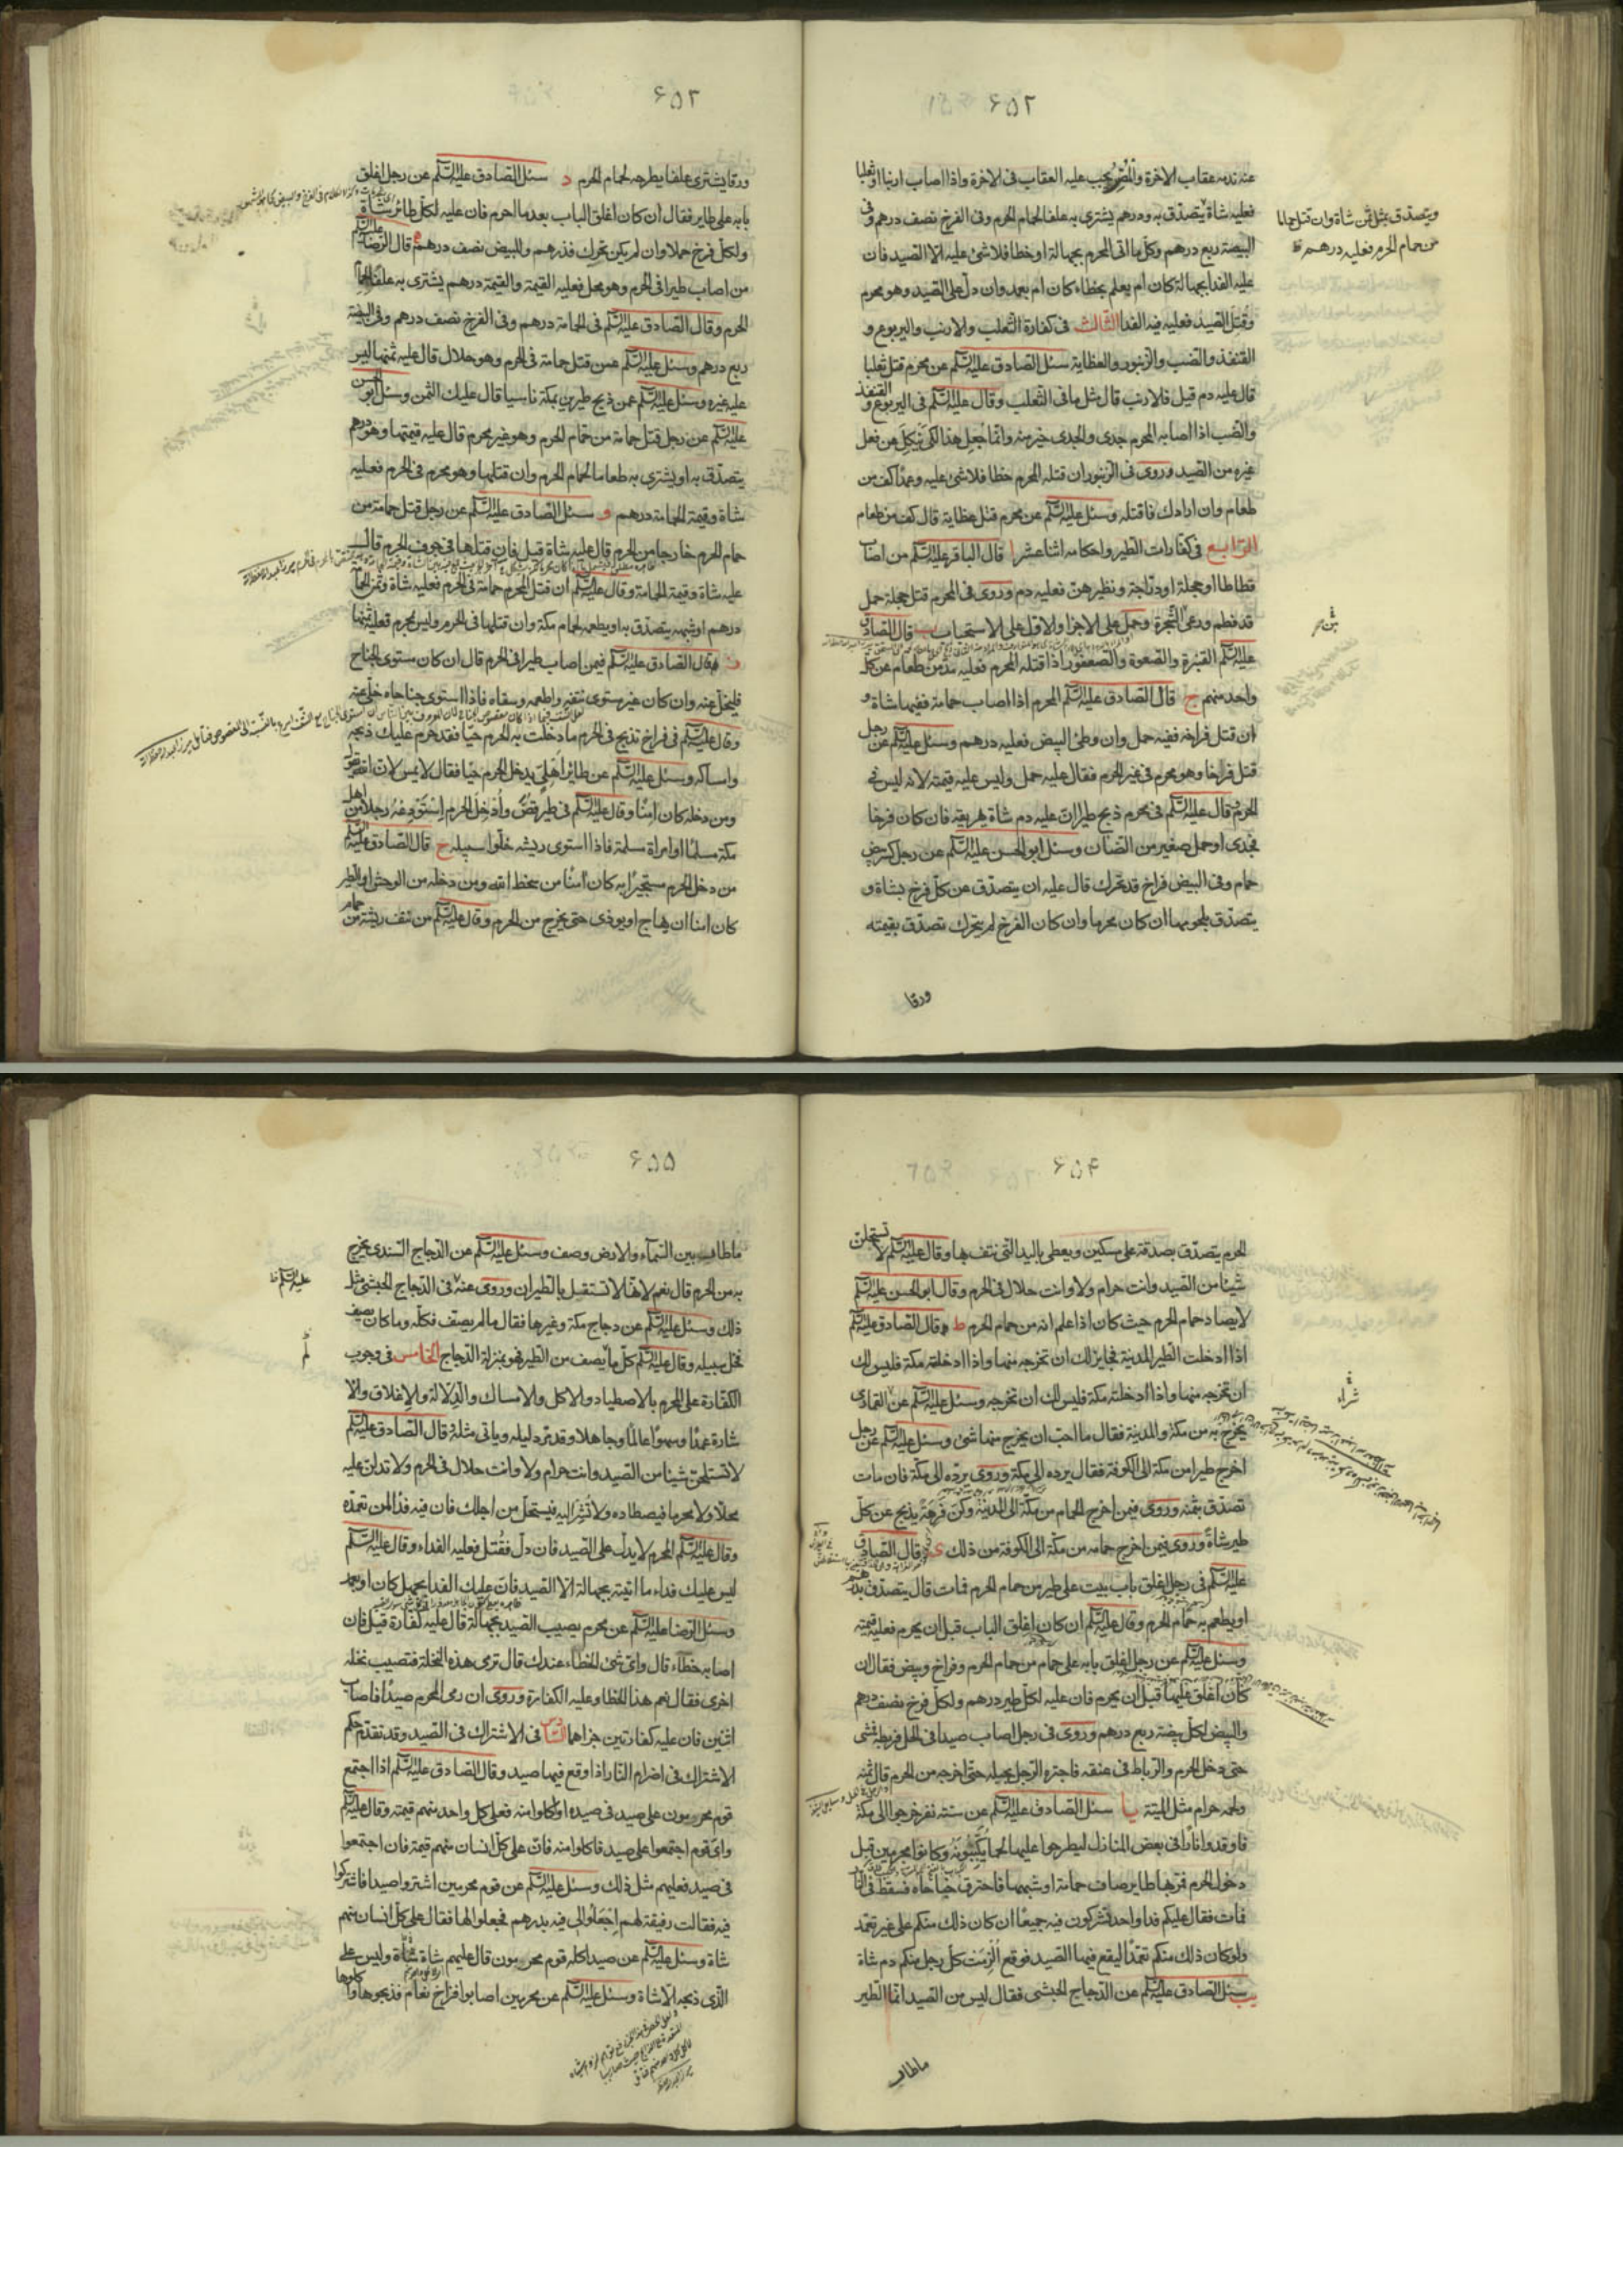 ۶۵۲
عنه ندمه عقاب الاخرة والمصر يجب عليه العقاب فى الاخرة واذا اصاب ارنبا او ثعلبا
فعليه شاة يتصدق به ودرهم يشترى به علفا لحمام الحرم وفى الفرخ نصف درهم وفى
البيضة ربع درهم وكل ما اتى المحرم بجهالة او خطا فلا شئ عليه الا الصيد فان
عليه الفدا بجهالة كان ام بعلم بخطاء كان ام بعمد وان دل على الصيد وهو محرم
وقتل الصيد فعليه فيه الفدا الثالث فى كفارة الثعلب والارنب واليربوع و
القنفذ والضب والزنبور والعظاية سئل الصادق عليه السلم عن محرم قتل ثعلبا
قال عليه دم قيل فلارنب قال مثل ما فى الثعلب وقال عليه السلم فى اليربوع والقنفذ
والضب اذا اصابه المحرم جدى والجدى خير منه وانما جعل هذا لكى ينكل عن فعل
غيره من الصيد وروى فى الزنبور ان قتله المحرم خطا فلا شئ عليه وعمدا كف من
طعام وان ارادك فاقتله وسئل عليه السلم عن محرم قتل عظاية قال كف من طعام
الرابع فى كفارات الطير واحكامه اثنا عشر ا قال الباقر عليه السلم من اصاب
قطاطا او حجلة او دراجة ونظيرهن فعليه دم وروى فى المحرم قتل حجلة حمل
قد فطم ورعى الشجرة وحمل على الاجزا والاول على الاستحباب ب قال الصادق
عليه السلم القنبرة والصعوة والصعفور اذا قتله المحرم فعليه مد من طعام عن كل
واحد منهم ج قال الصادق عليه السلم المحرم اذا اصاب حمامة ففيها شاة و
ان قتل فراخه ففيه حمل وان وطئ البيض فعليه درهم وسئل عليه السلم عن رجل
قتل فراخا وهو محرم فى غير الحرم فقال عليه حمل وليس عليه قيمته لانه ليس فى
الحرم وقال عليه السلم فى محرم ذبح طيرا ان عليه دم شاة يهريقه فان كان فرخا
فجدى او حمل صغير من الضان وسئل ابو الحسن عليه السلم عن رجل كسر بيض
حمام وفى البيض فراخ قد تحرك قال عليه ان يتصدق عن كل فرخ بشاة و
يتصدق بلحومها ان كان محرما وان كان الفرخ لم يتحرك تصدق بقيمته
ورقا
ويتصدق بمثل ثمن شاة وان قتل حماما
من حمام الحرم فعليه درهم
۶۵۳
ورقا يشترى علفا يطرحه لحمام الحرم د سئل الصادق عليه السلم عن رجل اغلق
بابه على طاير فقال ان كان اغلق الباب بعد ما احرم فان عليه لكل طائر شاة
ولكل فرخ حملا وان لم يكن تحرك فدرهم وللبيض نصف درهم ه قال الرضا عليه السلم
من اصاب طيرا فى الحرم وهو محل فعليه القيمة والقيمة درهم يشترى به علفا لحمام
الحرم وقال الصادق عليه السلم فى الحمامة درهم وفى الفرخ نصف درهم وفى البيضة
ربع درهم وسئل عليه السلم عمن قتل حمامة فى الحرم وهو حلال قال عليه ثمنها ليس
عليه غيره وسئل عليه السلم عمن ذبح طيرين بمكة ناسيا قال عليك الثمن وسئل ابو الحسن
عليه السلم عن رجل قتل حمامة من حمام الحرم وهو غير محرم قال عليه قيمتها وهو درهم
يتصدق به او يشترى به طعاما لحمام الحرم وان قتلها وهو محرم فى الحرم فعليه
شاة وقيمة الحمامة درهم و سئل الصادق عليه السلم عن رجل قتل حمامة من
حمام الحرم خارجا من الحرم قال عليه شاة قيل فان قتلها فى جوف الحرم قال
عليه شاة وقيمة الحمامة وقال عليه السلم ان قتل المحرم حمامة فى الحرم فعليه شاة وثمن الحمامة
درهم او شبهه يتصدق به او يطعمه لحمام مكة وان قتلها فى الحرم وليس بمحرم فعليه ثمنها
ز قال الصادق عليه السلم فيمن اصاب طيرا فى الحرم قال ان كان مستوى الجناح
فليخل عنه وان كان غير مستوى نتفه واطعمه وسقاه فاذا استوى جناحاه خلى عنه
وقال عليه السلم فى فراخ تذبح فى الحرم ما دخلت به الحرم حيا فقد حرم عليك ذبحه
وامساكه وسئل عليه السلم عن طائر اهلى يدخل الحرم حيا فقال لا يمس لان الله يقول
ومن دخله كان امنا وقال عليه السلم فى طير قص وادخل الحرم استودعه رجلا من اهل
مكة مسلما او امراة مسلمة فاذا استوى ريشه خلوا سبيله ح قال الصادق عليه السلم
من دخل الحرم مستجيرا به كان امنا من سخط الله ومن دخله من الوحش او الطير
كان امنا ان يهاج او يوذى حتى يخرج من الحرم وقال عليه السلم من نتف ريشة من حمام
۶۵۴
الحرم يتصدق بصدقة على مسكين ويعطى باليد التى نتف بها وقال عليه السلم لا تستحلن
شيئا من الصيد وانت حرام ولا وانت حلال فى الحرم وقال ابو الحسن عليه السلم
لا يصاد حمام الحرم حيث كان اذا علم انه من حمام الحرم ط قال الصادق عليه السلم
اذا ادخلت الطير المدينة فجايز لك ان تخرجه منها واذا ادخلته مكة فليس لك
ان تخرجه منها واذا ادخلته مكة فليس لك ان تخرجه وسئل عليه السلم عن القمارى
يخرج به من مكة والمدينة فقال ما احب ان يخرج منها شئ وسئل عليه السلم عن رجل
اخرج طيرا من مكة الى الكوفة فقال يرده الى مكة وروى يرده الى مكة فان مات
تصدق بثمنه وروى فيمن اخرج الحمام من مكة الى المدينة وكن فرهة يذبح عن كل
طير شاة وروى فيمن اخرج حمامه من مكة الى الكوفة من ذلك ى قال الصادق
عليه السلم فى رجل اغلق باب بيت على طير من حمام الحرم فمات قال يتصدق بدرهم
او يطعم به حمام الحرم وقال عليه السلم ان كان اغلق الباب قبل ان يحرم فعليه قيمته
وسئل عليه السلم عن رجل اغلق بابه على حمام من حمام الحرم وفراخ وبيض فقال ان
كان اغلق عليها قبل ان يحرم فان عليه لكل طير درهم ولكل فرخ نصف درهم
والبيض لكل بيضة ربع درهم وروى فى رجل اصاب صيدا فى الحل فربطه فمشى
حتى دخل الحرم والرباط فى عنقه فاجتره الرجل بحبله حتى اخرجه من الحرم قال ثمنه
ولحمه حرام مثل الميتة يا سئل الصادق عليه السلم عن ستة نفر خرجوا الى مكة
فاوقدوا نارا فى بعض المنازل ليطرحوا عليها لحما يكببونه وكانوا محرمين قبل
دخول الحرم فمر بها طاير صاف حمامة او شبهها فاحترق جناحاه فسقط فى النار
فمات فقال عليكم فدا واحد تشركون فيه جميعا ان كان ذلك منكم على غير تعمد
ولو كان ذلك منكم تعمدا ليقع فيها الصيد فوقع الزمت كل رجل منكم دم شاة
يب سئل الصادق عليه السلم عن الدجاج الحبشى فقال ليس من الصيد انما الطير
ما طار
شراه
۶۵۵
ما طار بين السماء والارض وصف وسئل عليه السلم عن الدجاج السندى يخرج
به من الحرم قال نعم لانها لا تستقل بالطيران وروى عنه فى الدجاج الحبشى مثل
ذلك وسئل عليه السلم عن دجاج مكة وغيرها فقال ما لم يصف فكله وما كان يصف
فخل سبيله وقال عليه السلم كل ما يصف من الطير فهو بمنزلة الدجاج الخامس فى وجوب
الكفارة على المحرم بالاصطياد والاكل والامساك والدلالة والاغلاق والا
شارة عمدا وسهوا عالما وجاهلا وقد مر دليله وياتى مثله وقال الصادق عليه السلم
لا تستحلن شيئا من الصيد وانت حرام ولا وانت حلال فى الحرم ولا تدلن عليه
محلا ولا محرما فيصطاده ولا تشر اليه فيستحل من اجلك فان فيه فدا لمن تعمده
وقال عليه السلم المحرم لا يدل على الصيد فان دل فقتل فعليه الفداء وقال عليه السلم
ليس عليك فداء ما اتيته بجهالة الا الصيد فان عليك الفدا بجهل كان او بعمد
وسئل الرضا عليه السلم عن محرم يصيب الصيد بجهالة قال عليه كفارة قيل فان
اصابه خطاء قال واى شئ الخطاء عندك قال ترمى هذه النخلة فتصيب نخلة
اخرى فقال نعم هذا الخطا وعليه الكفارة وروى ان رمى المحرم صيدا فاصاب
اثنين فان عليه كفارتين جزاهما السادس فى الاشتراك فى الصيد وقد تقدم حكم
الاشتراك فى اضرام النار اذا وقع فيها صيد وقال الصادق عليه السلم اذا اجتمع
قوم محرمون على صيد فى صيده او اكلوا منه فعلى كل واحد منهم قيمته وقال عليه السلم
واى قوم اجتمعوا على صيد فاكلوا منه فان على كل انسان منهم قيمة فان اجتمعوا
فى صيد فعليهم مثل ذلك وسئل عليه السلم عن قوم محرمين اشتروا صيدا فاشتركوا
فيه فقالت رفيقة لهم اجعلوا لى فيه بدرهم فجعلوا لها فقال على كل انسان منهم
شاة وسئل عليه السلم عن صيد اكله قوم محرمون قال عليهم شاة شاة وليس على
الذى ذبحه الا شاة وسئل عليه السلم عن محرمين اصابوا افراخ نعام فذبحوها واكلوها
عليه السلم